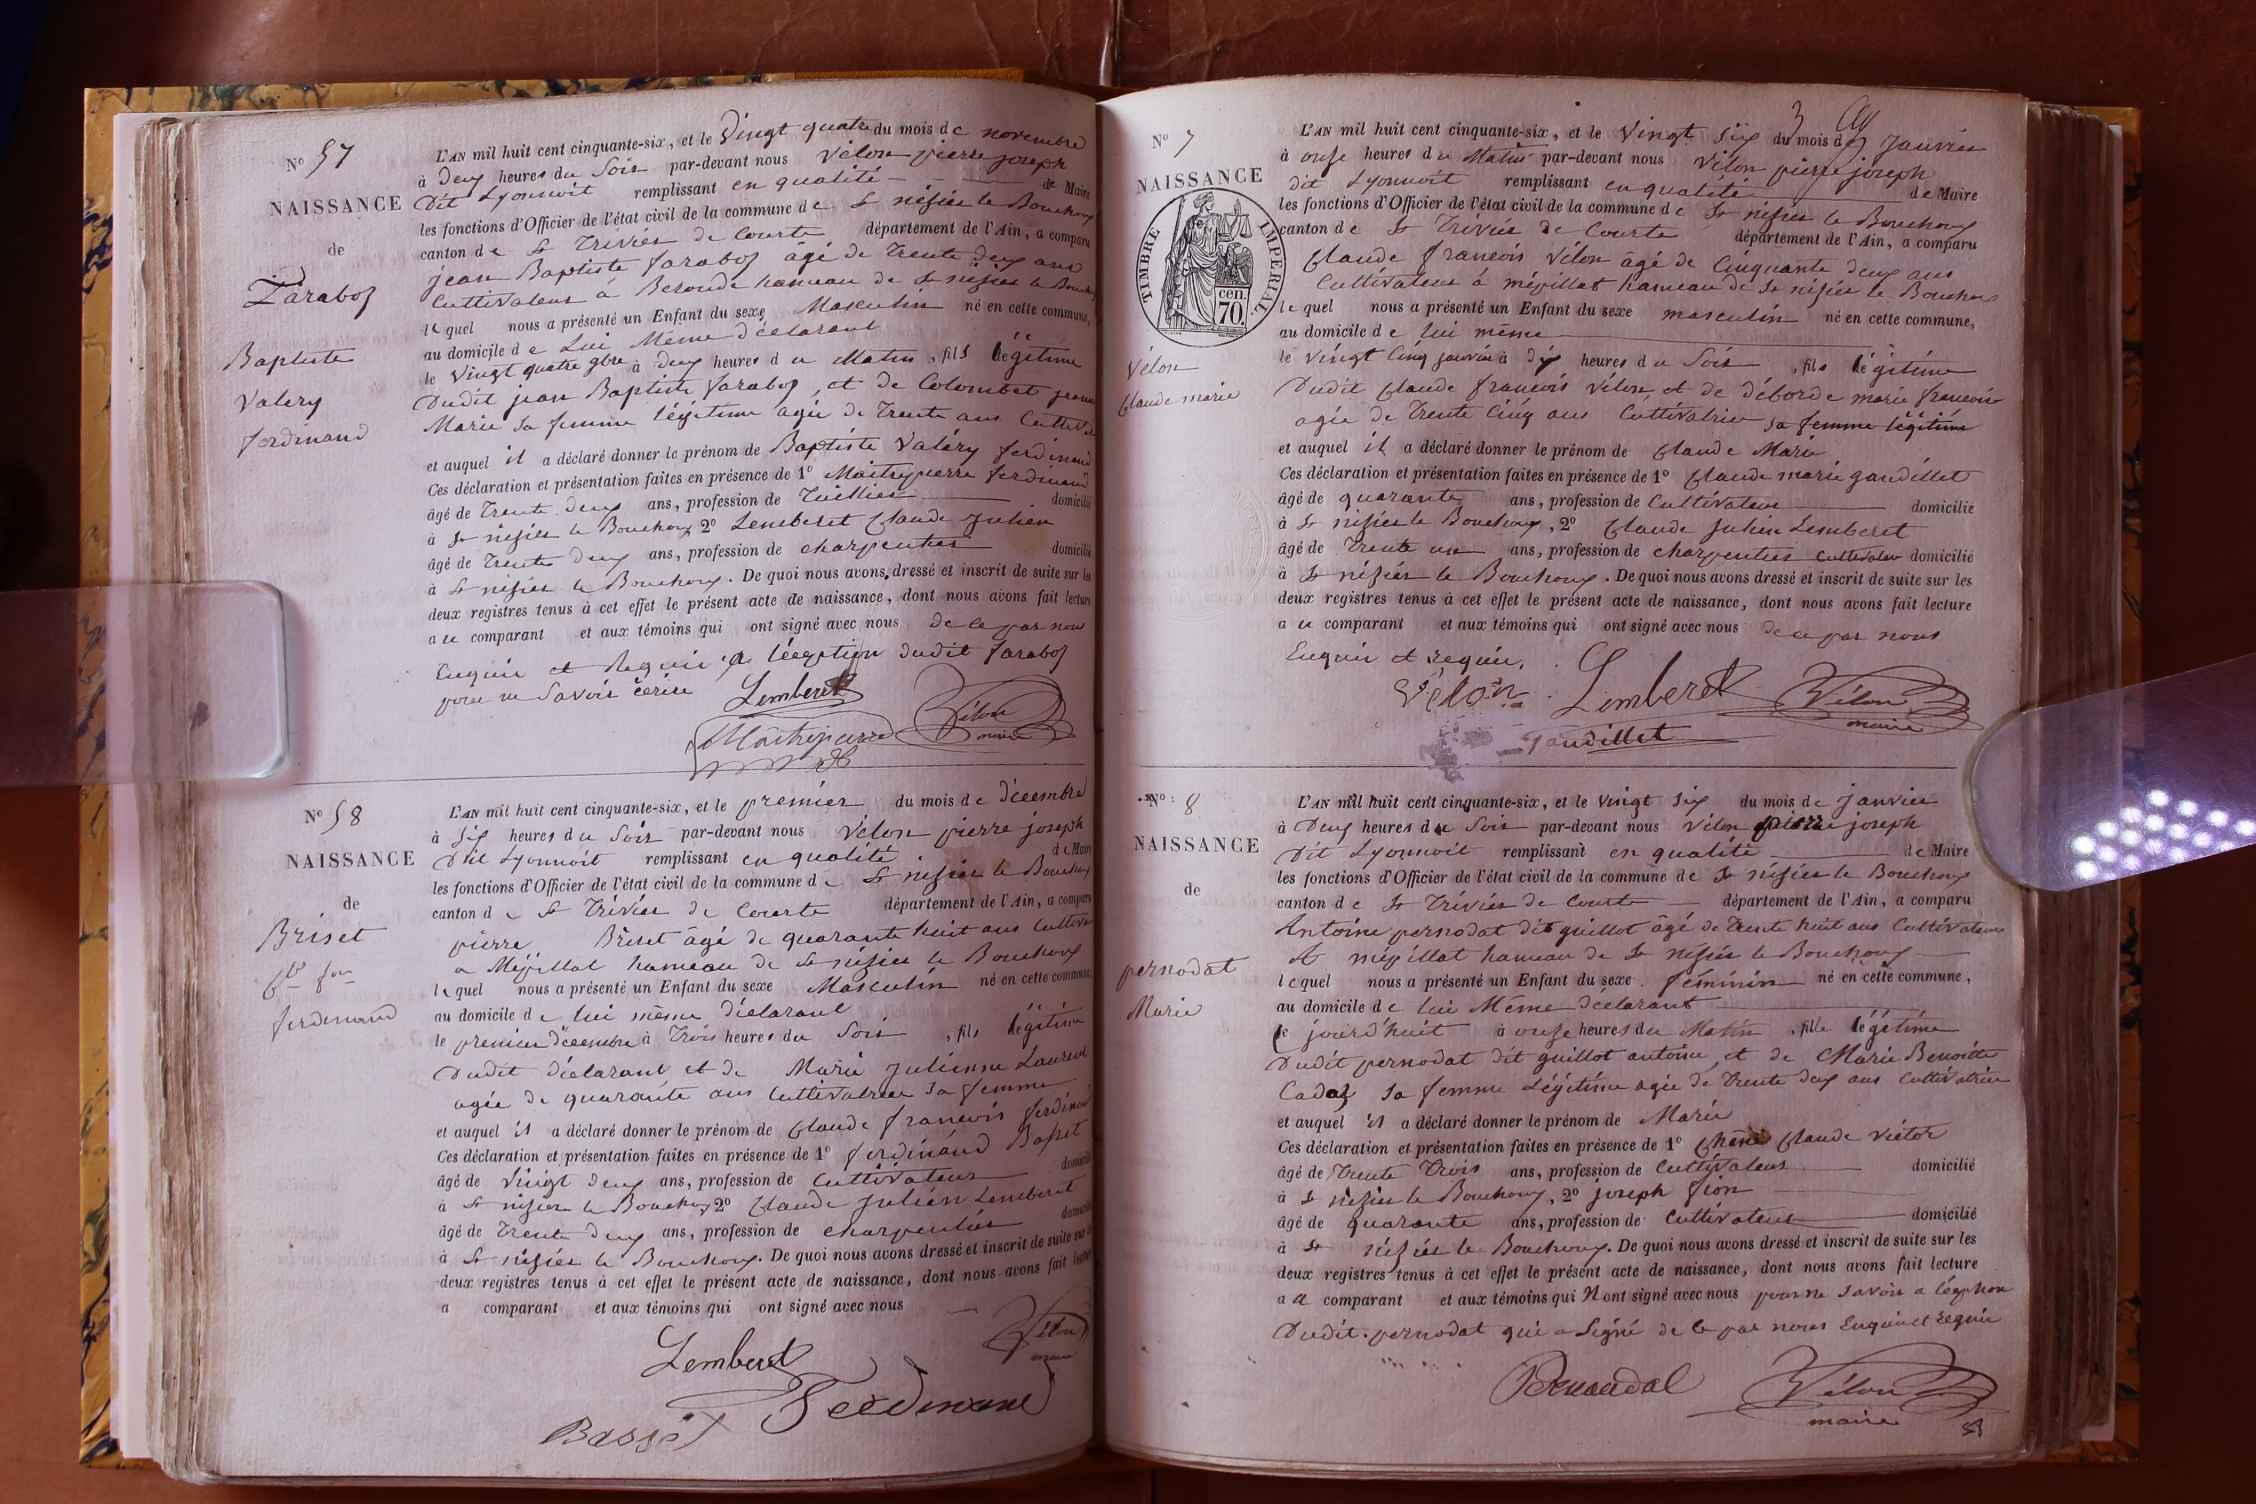 N° 57
NAISSANCE
de
Faraboz
Baptiste
Valery
ferdinand
L'AN mil huit cent cinquante-six, et le Vingt quatre du mois de novembre
à Deux heures du Soir par-devant nous Vélon pierre joseph
Dit Lyonnoit remplissant en qualité de Maire
les fonctions d'Officier de l'état civil de la commune de St nisier le Bouchoux
canton de St Trivier de Courte département de l'Ain, a comparu
jean Baptiste faraboz âgé de Trente deux ans
Cultivateur à Beroude hameau de St nisier le Bouchoux
lequel nous a présenté un Enfant du sexe Masculin né en cette commune,
au domicile de Lui Même déclarant
le Vingt quatre 9bre à deux heures du Matin, fils légitime
Dudit jean Baptiste faraboz, et de Colombet jeanne
Marie Sa femme légitime âgée de Trente ans Cultiv
et auquel il a déclaré donner le prénom de Baptiste Valéry ferdinand
Ces déclaration et présentation faites en présence de 1° Maitrepierre ferdinand
âgé de Trente deux ans, profession de Tuillier domicilié
à St nisier le Bouchoux 2° Lemberet Claude Julien
âgé de Trente deux ans, profession de charpentier domicilié
à St nisier le Bouchoux. De quoi nous avons dressé et inscrit de suite sur les
deux registres tenus à cet effet le présent acte de naissance, dont nous avons fait lecture
au comparant et aux témoins qui ont signé avec nous de ce par nous
Enquir et Requir à l'éeeption dudit faraboz
pour ne Savoir écrire Lemberet
Maitrepierre Vélon
maire
N° 58
NAISSANCE
de
Briset
Cde fois
ferdinand
L'AN mil huit cent cinquante-six, et le premier du mois de décembre
à Six heures du Soir par-devant nous Vélon pierre joseph
Dit Lyonnoit remplissant en qualité de Maire
les fonctions d'Officier de l'état civil de la commune de St nisier le Bouchoux
canton de St Trivier de Courte département de l'Ain, a comparu
pierre Briset âgé de quarante huit ans Cultiva
a Mépillat hameau de St nisier le Bouchoux
lequel nous a présenté un Enfant du sexe Masculin né en cette commune,
au domicile de lui même déclarant
le premier décembre à Trois heures du Soir, fils légitime
Dudit déclarant et de Marie julienne Laurent
agée de quarante ans Cultivatrice Sa femme
et auquel il a déclaré donner le prénom de Claude françois ferdinand
Ces déclaration et présentation faites en présence de 1° ferdinand Basset
âgé de Vingt deux ans, profession de Cultivateur domicilié
à St nisier le Bouchoux 2° Claude Julien Lemberet
âgé de Trente deux ans, profession de charpentier domicilié
à St nisier le Bouchoux. De quoi nous avons dressé et inscrit de suite sur les
deux registres tenus à cet effet le présent acte de naissance, dont nous avons fait lecture
a comparant et aux témoins qui ont signé avec nous
Vélon
maire
Lemberet
Basset Ferdinand
3
N° 7
NAISSANCE
TIMBRE IMPERIAL
cen.
70
Vélon
Claude marie
L'AN mil huit cent cinquante-six, et le Vingt Six du mois de Janvier
à onze heures du Matin par-devant nous Vélon pierre joseph
Dit Lyonnoit remplissant en qualité de Maire
les fonctions d'Officier de l'état civil de la commune de St nisier le Bouchoux
canton de St Trivier de Courte département de l'Ain, a comparu
Claude françois Vélon âgé de Cinquante deux ans
Cultivateur à mépillat hameau de St nisier le Bouchoux
lequel nous a présenté un Enfant du sexe masculin né en cette commune,
au domicile de lui même
le vingt Cinq janvier à dix heures du Soir, fils légitime
Dudit Claude françois Vélon, et de déborde marie françoise
agée de Trente Cinq ans Cultivatrice sa femme légitime
et auquel il a déclaré donner le prénom de Claude Marie
Ces déclaration et présentation faites en présence de 1° Claude marie gaudillet
âgé de quarante ans, profession de Cultivateur domicilié
à St nisier le Bouchoux, 2° Claude Julien Lemberet
âgé de Trente un ans, profession de charpentier Cultivateur domicilié
à St nisier le Bouchoux. De quoi nous avons dressé et inscrit de suite sur les
deux registres tenus à cet effet le présent acte de naissance, dont nous avons fait lecture
au comparant et aux témoins qui ont signé avec nous de ce par nous
Enquir et requir.
Vélon Lemberet Vélon
maire
gaudillet
N° 8
NAISSANCE
de
pernodat
Marie
L'AN mil huit cent cinquante-six, et le Vingt Six du mois de janvier
à Deux heures du Soir par-devant nous Vélon pierre joseph
Dit Lyonnoit remplissant en qualité de Maire
les fonctions d'Officier de l'état civil de la commune de St nisier le Bouchoux
canton de St Trivier de Courte département de l'Ain, a comparu
Antoine pernodat dit guillot âgé de Trente huit ans Cultivateur
A mépillat hameau de St nisier le Bouchoux
lequel nous a présenté un Enfant du sexe féminin né en cette commune,
au domicile de lui Même déclarant
Ce jourd'huit à onze heures du Matin, fille légitime
Dudit pernodat dit guillot antoine, et de Marie Benoitte
Cadoz Sa femme Légitime agée de Trente deux ans Cultivatrice
et auquel il a déclaré donner le prénom de Marie
Ces déclaration et présentation faites en présence de 1° Chêne Claude Victor
âgé de Trente Trois ans, profession de Cultivateur domicilié
à St nisier le Bouchoux, 2° joseph fion
âgé de quarante ans, profession de Cultivateur domicilié
à St nisier le Bouchoux. De quoi nous avons dressé et inscrit de suite sur les
deux registres tenus à cet effet le présent acte de naissance, dont nous avons fait lecture
au comparant et aux témoins qui N ont signé avec nous pour ne Savoir a l'éeption
Dudit pernodat qui a Signé de ce par nous Enquir et requir
Vélon
maire